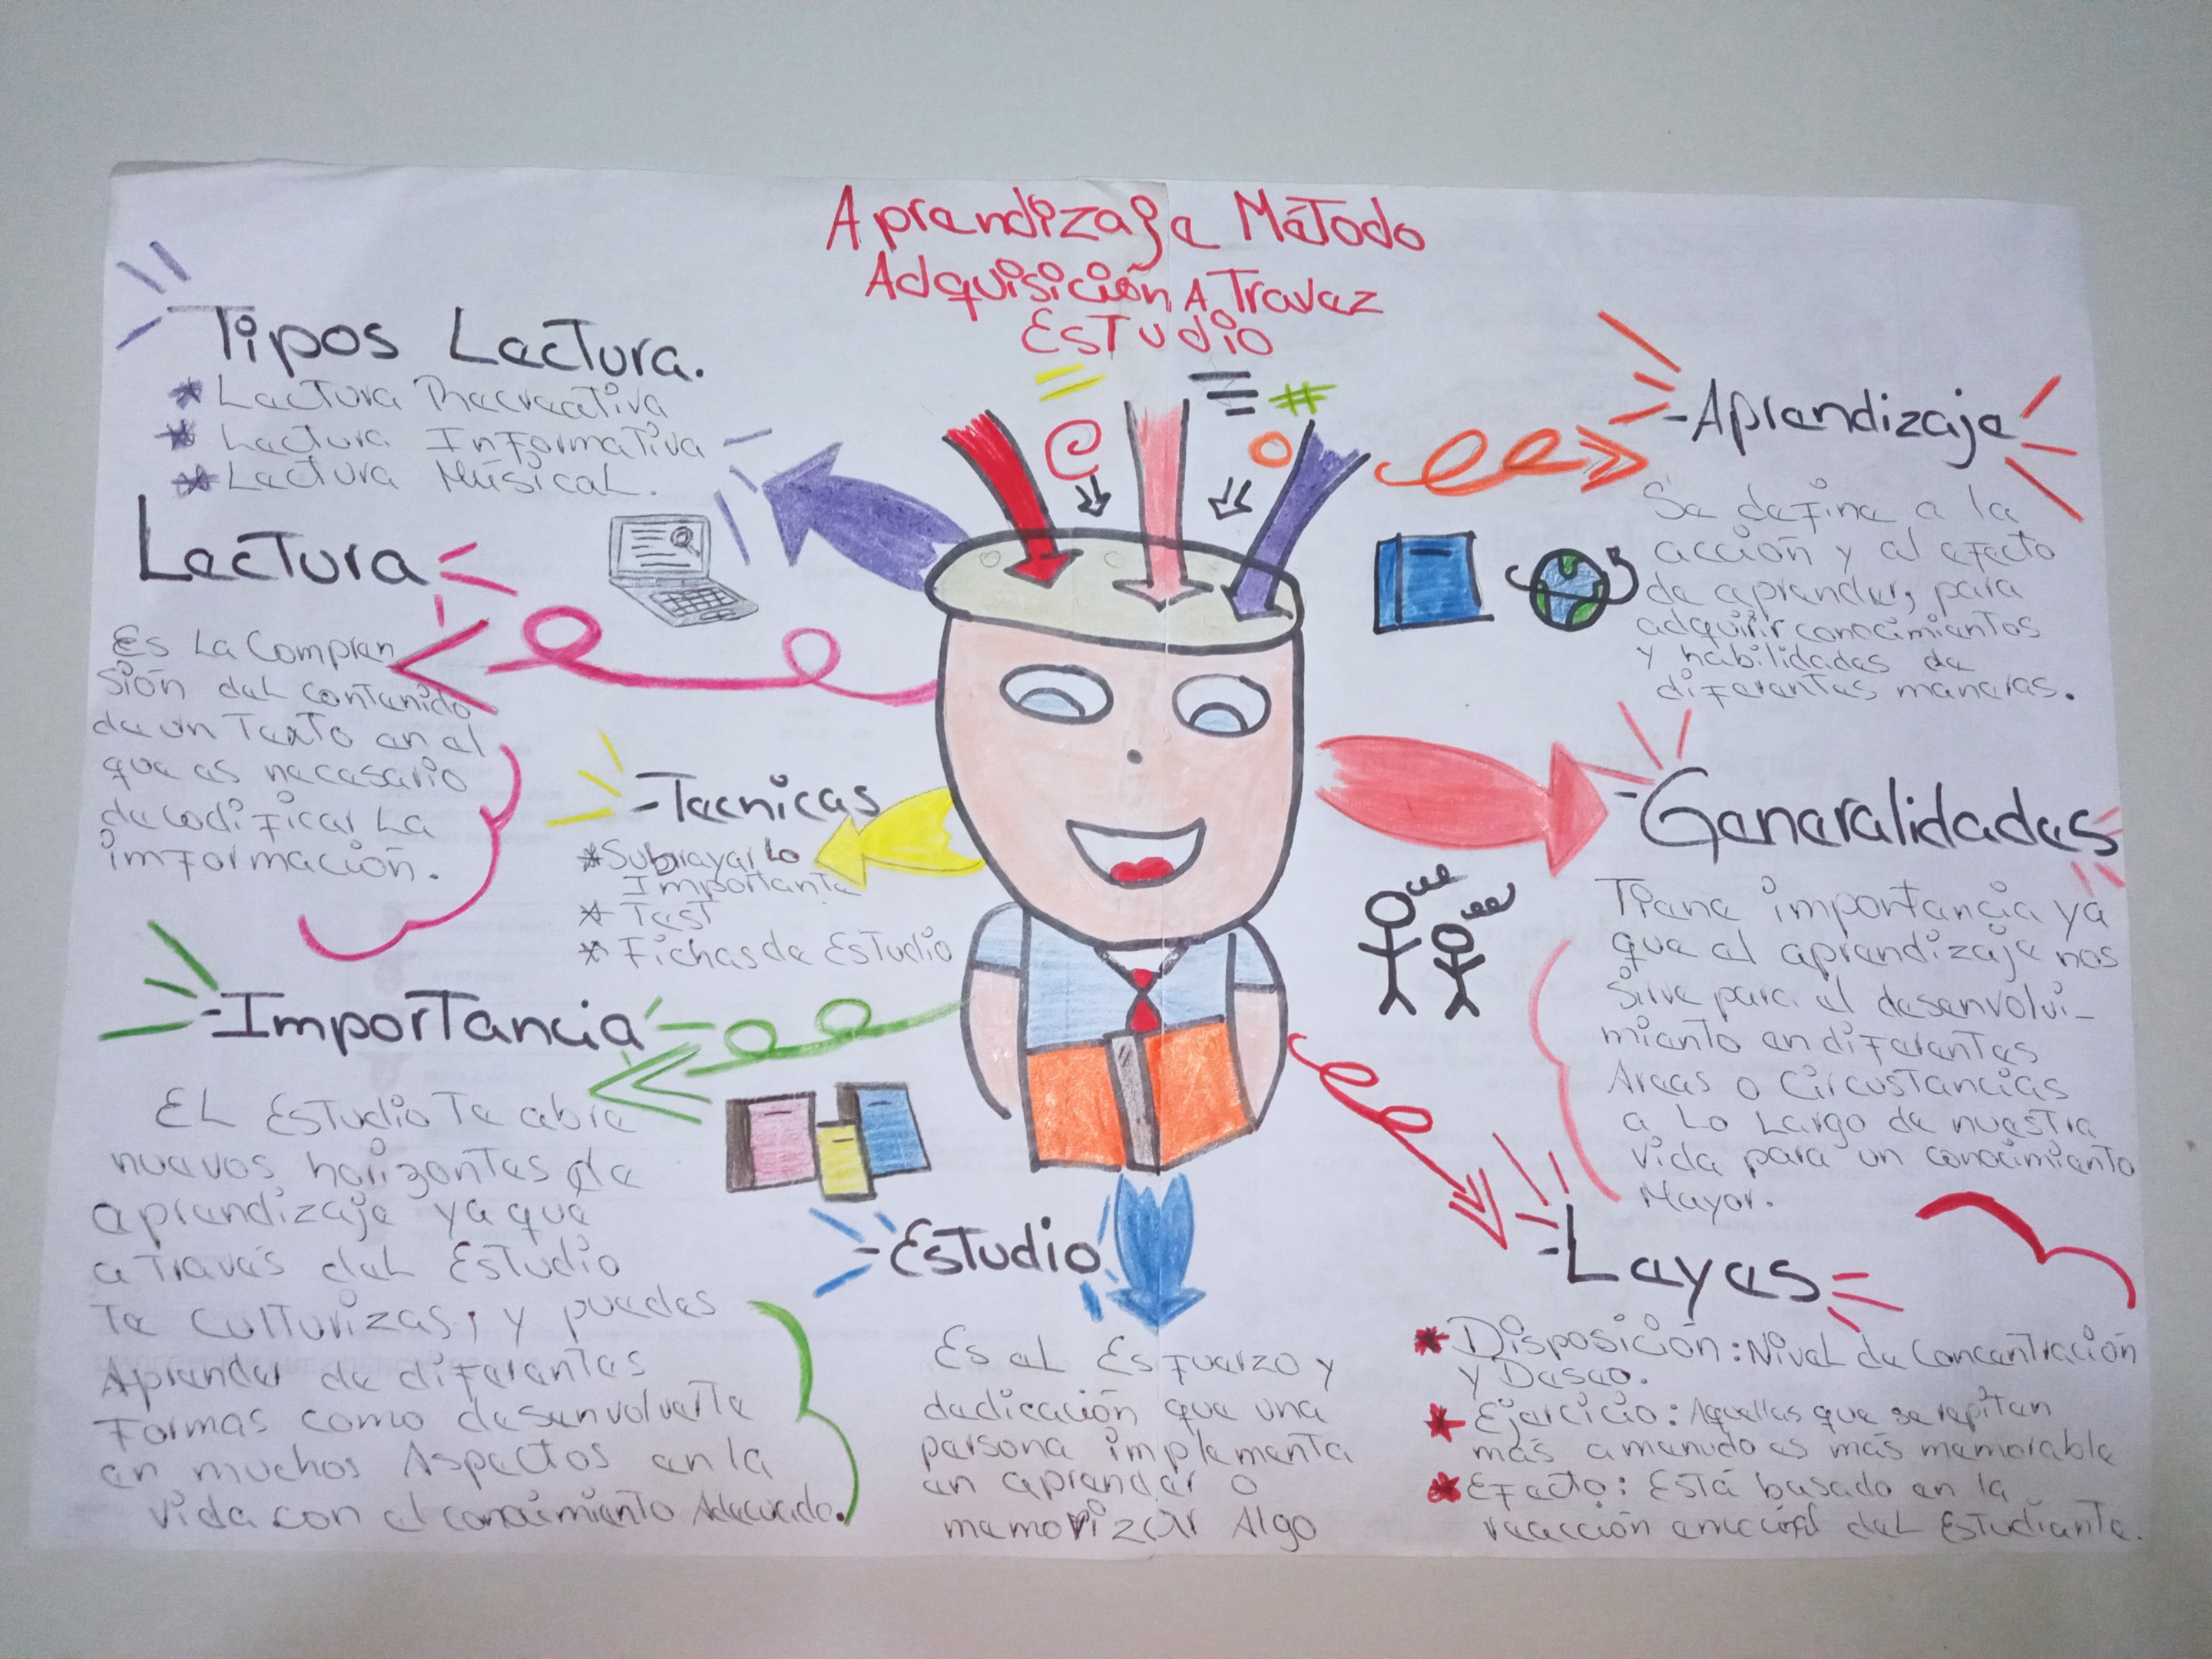 Aprendizaje Método
Adquisición A Travez
Estudio
Tipos Lectura.
* Lectura Recreativa
* Lectura Informativa
* Lectura Músical.
Lectura
Es La Compren
sión del contenido
de un Texto en el
que es necesario
decodificar La
información.
-Tecnicas
* Subrayar Lo
Importante
* Test
* Fichas de Estudio
-Importancia
El Estudio Te abre
nuevos horizontes de
aprendizaje ya que
a través del Estudio
Te culturizas, y puedes
Aprender de diferentes
Formas como desenvolverte
en muchos Aspectos en la
vida con el conocimiento Adecuado.
-Estudio
Es el Esfuerzo y
dedicación que una
persona implementa
en aprender o
memorizar Algo
-Aprendizaje
Se define a la
acción y al efecto
de aprender, para
adquirir conocimientos
y habilidades de
diferentes maneras.
-Generalidades
Tiene importancia ya
que el aprendizaje nos
sirve para el desenvolvi-
miento en diferentes
Areas o Circustancias
a Lo Largo de nuestra
vida para un conocimiento
Mayor.
-Leyes
* Disposición: Nivel de Concentración
y Deseo.
* Ejercicio: Aquellas que se repiten
más a menudo es más memorable
* Efecto: Está basado en la
reacción del Estudiante.